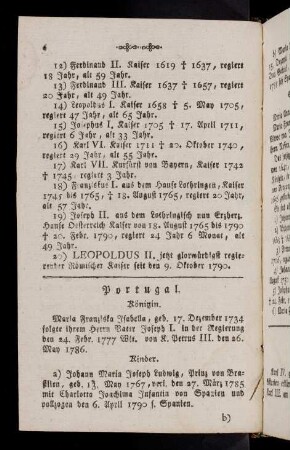 6
12) Ferdinand II. Kaiser 1619 † 1637, regiert
18 Jahr, alt 59 Jahr.
13) Ferdinand III. Kaiser 1637 † 1657, regiert
20 Jahr, alt 49 Jahr.
14) Leopoldus I. Kaiser 1658 † 5. May 1705,
regiert 47 Jahr, alt 65 Jahr.
15) Josephus I, Kaiser 1705 † 17. April 1711,
regiert 6 Jahr, alt 33 Jahr.
16) Karl VI. Kaiser 1711 † 20. Oktober 1740,
regiert 29 Jahr, alt 55 Jahr.
17) Karl VII. Kurfürst von Bayern, Kaiser 1742
† 1745. regiert 3 Jahr.
18) Franziskus I. aus dem Hause Lothringen, Kaiser
1745 bis 1765, † 18. August 1765, regiert 20 Jahr,
alt 57 Jahr.
19) Joseph II. aus dem Lothringisch nun Erzherz.
Hause Oesterreich Kaiser von 18. August 1765 bis 1790
† 20. Febr. 1790, regiert 24 Jahr 6 Monat, alt
49 Jahr.
20) LEOPOLDUS II, jetzt glorwürdigst regie-
render Römischer Kaiser seit den 9. Oktober 1790.
Portugal.
Königin.
Maria Franziska Isabella, geb. 17. Dezember 1734
folgte ihrem Herrn Vater Joseph I. in der Regierung
den 24. Febr. 1777 Wit. von K. Petrus III. den 26.
May 1786.
Kinder.
a) Johann Maria Joseph Ludwig, Prinz von Bra-
silien, geb. 13. May 1767, verl. den 27. März 1785
mit Charlotta Joachima Infantin von Spanien und
vollzogen den 6. April 1790 s. Spanien.
b)